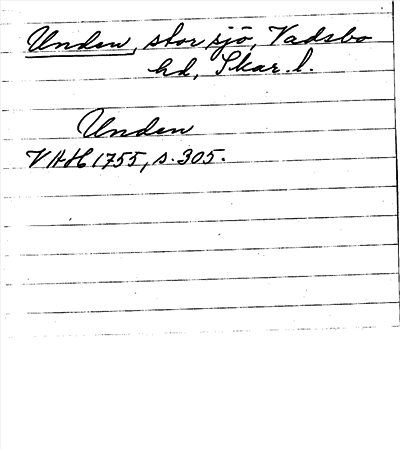 Unden, stor sjö, Vadsbo
hd, Skar. l.
Unden
VAH 1755, s. 305.